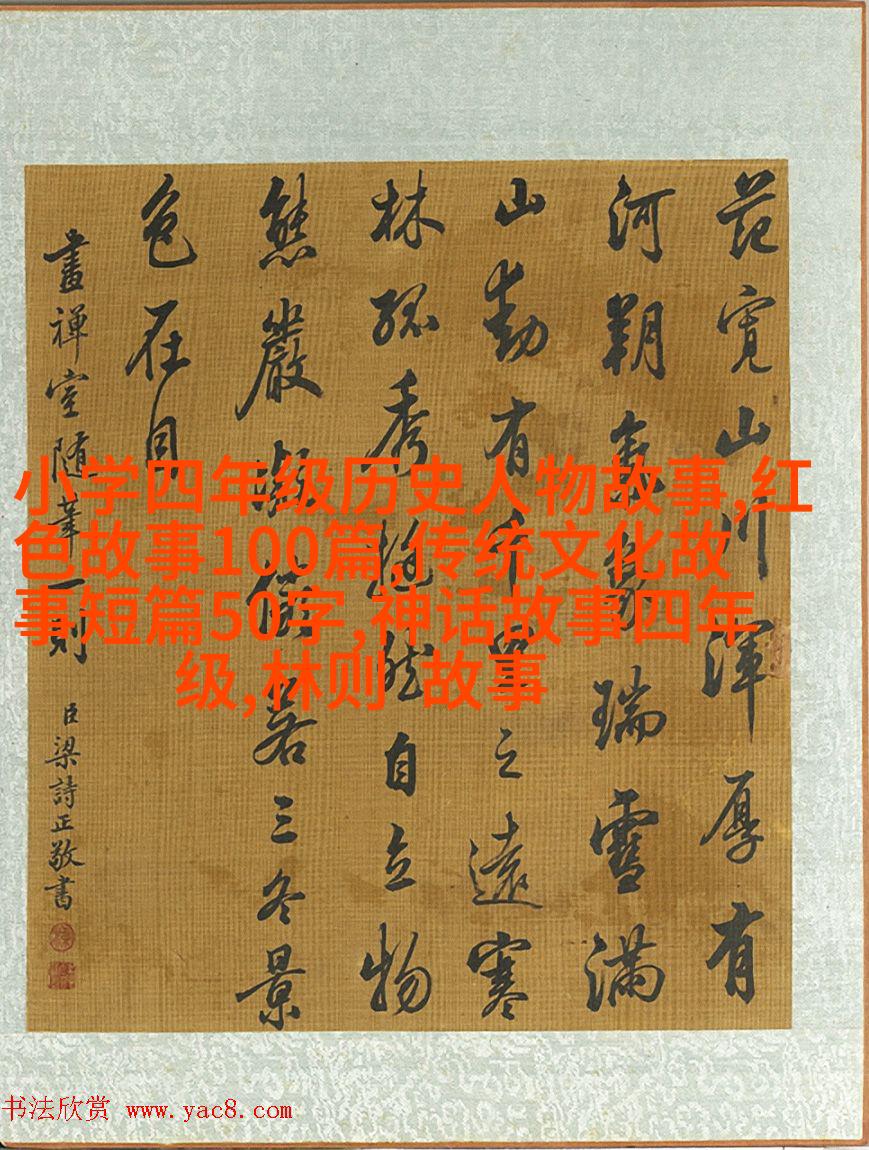 范寬山川渾厚有
河朔氣象瑞雪滿
山動有千里之遠寒
林孤秀挺然自立物
態嚴凝儼若三冬景
色在目
畫禪室隨筆一則
臣梁詩正敬書
小学四年级历史人物故事,红
色故事100篇,传统文化故
事短篇50字,神话故事四年
级,林则 故事
书法欣赏 www.yac8.com